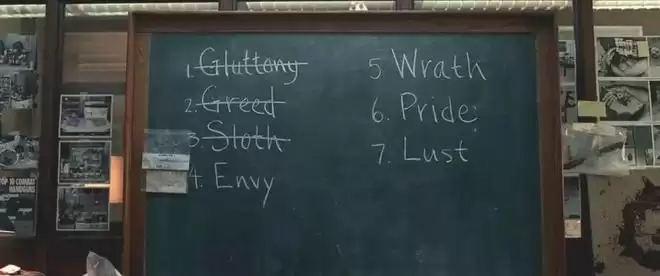 1. Gluttony
2. Greed
3. Sloth
4. Envy
5 Wrath
6. Pride
7. Lust
TOP 10 COMBAT
HANDGUNS